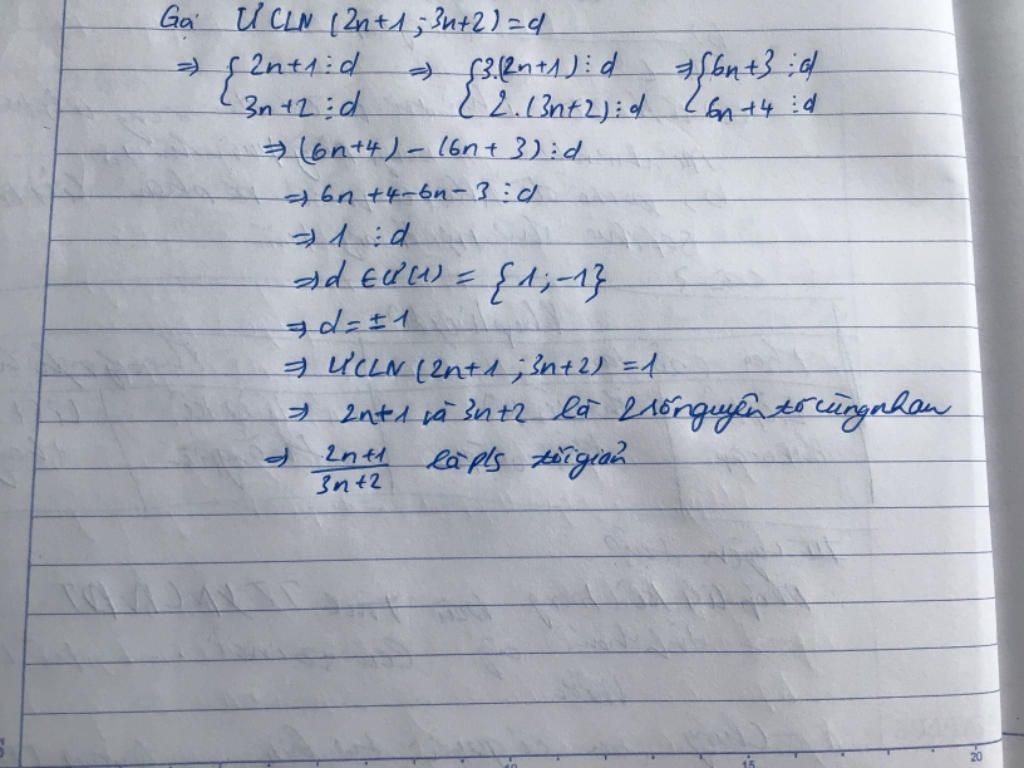 Gọi ƯCLN (2n+1 ; 3n+2) = d
⇒ { 2n+1 ⋮ d ⇒ { 3.(2n+1) ⋮ d ⇒ { 6n+3 ⋮ d
3n+2 ⋮ d 2.(3n+2) ⋮ d 6n+4 ⋮ d
⇒ (6n+4) - (6n+3) ⋮ d
⇒ 6n+4-6n-3 ⋮ d
⇒ 1 ⋮ d
⇒ d ∈ Ư(1) = {1; -1}
⇒ d = ±1
⇒ ƯCLN (2n+1 ; 3n+2) = 1
⇒ 2n+1 và 3n+2 là 2 số nguyên tố cùng nhau
⇒ 2n+1/3n+2 là p/s tối giản
15 20